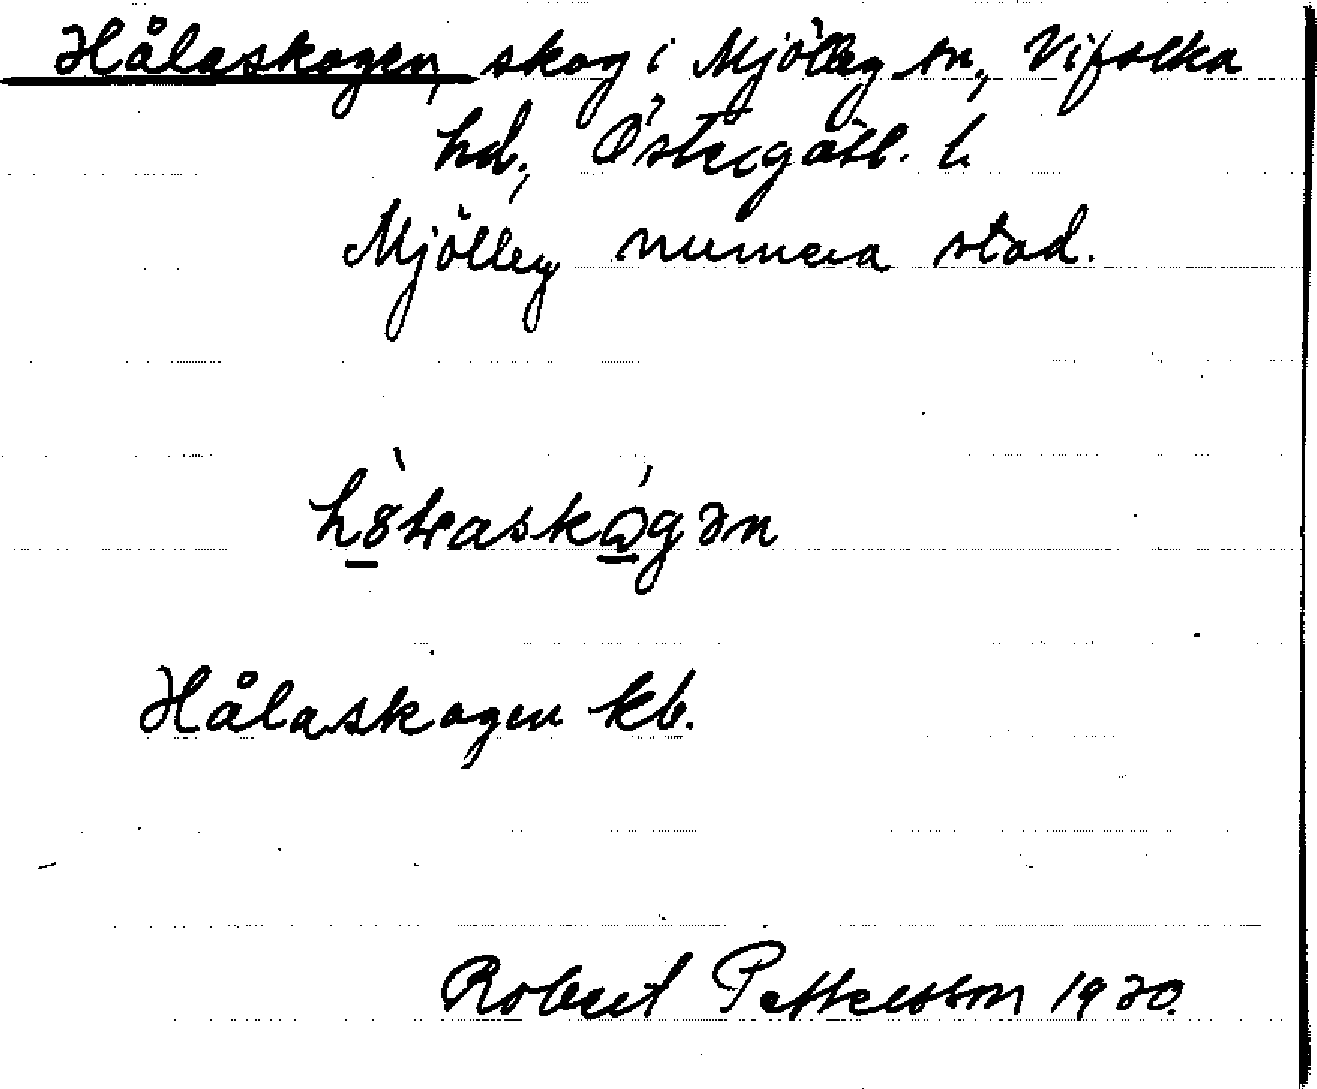 Hålaskogen, skog i Mjölby sn, Vifolka
hd, Östergötl. l.
Mjölby numera stad.
Hålaskogen kb.
Robert Pettersson 1930.